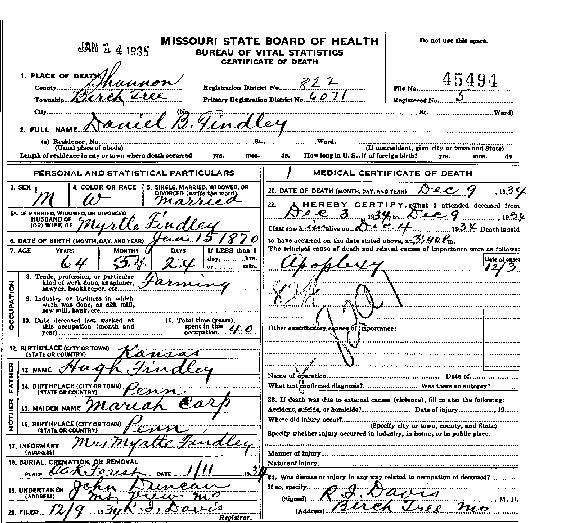 JAN 24 1935
MISSOURI STATE BOARD OF HEALTH
BUREAU OF VITAL STATISTICS
CERTIFICATE OF DEATH
Do not use this space.
1. PLACE OF DEATH
County Shannon Registration District No. 822 File No. 45494
Township Birch Tree Primary Registration District No. 6071 Registered No. 5
City (No. St. Ward)
2. FULL NAME Daniel B. Findley
(a) Residence, No. St. Ward.
(Usual place of abode) (If nonresident, give city or town and State)
Length of residence in city or town where death occurred yrs. mos. ds. How long in U. S., if of foreign birth? yrs. mos. ds.
PERSONAL AND STATISTICAL PARTICULARS
3. SEX M
4. COLOR OR RACE W
5. SINGLE, MARRIED, WIDOWED, OR DIVORCED (write the word) Married
5A. IF MARRIED, WIDOWED, OR DIVORCED
HUSBAND OF
(OR) WIFE OF Myrtle Findley
6. DATE OF BIRTH (MONTH, DAY, AND YEAR) June 15 1870
7. AGE YEARS MONTHS DAYS IF LESS than
64 5 24
OCCUPATION
8. Trade, profession, or particular kind of work done, as spinner, sawyer, bookkeeper, etc. Farming
9. Industry or business in which work was done, as silk mill, saw mill, bank, etc.
10. Date deceased last worked at this occupation (month and year)
11. Total time (years) spent in this occupation 40
12. BIRTHPLACE (CITY OR TOWN)
(STATE OR COUNTRY) Kansas
FATHER
13. NAME Hugh Findley
14. BIRTHPLACE (CITY OR TOWN)
(STATE OR COUNTRY) Penn
MOTHER
15. MAIDEN NAME Mariah Carp
16. BIRTHPLACE (CITY OR TOWN)
(STATE OR COUNTRY) Penn
17. INFORMANT Mrs Myrtle Findley
(ADDRESS)
18. BURIAL, CREMATION, OR REMOVAL
PLACE Oak Forest DATE 1/11 1934
19. UNDERTAKER John Duncan
(ADDRESS) Mt View Mo
20. FILED 12/9 1934 R. I. Davis
Registrar.
MEDICAL CERTIFICATE OF DEATH
21. DATE OF DEATH (MONTH, DAY, AND YEAR) Dec 9 1934
22. I HEREBY CERTIFY, That I attended deceased from
Dec 3 1934 Dec 9 1934
I last saw alive on Dec 4 1934 Death is said
to have occurred on the date stated above, at
The principal cause of death and related causes of importance were as follows:
Apoplexy
Date of onset
12/3
Other contributory causes of importance:
Name of operation Date of
What test confirmed diagnosis? Was there an autopsy?
23. If death was due to external causes (violence), fill in also the following:
Accident, suicide, or homicide? Date of injury 19
Where did injury occur?
(Specify city or town, county, and State)
Specify whether injury occurred in industry, in home, or in public place.
Manner of injury
Nature of injury
24. Was disease or injury in any way related to occupation of deceased?
If so, specify
(Signed) R. I. Davis M. D.
(Address) Birch Tree Mo